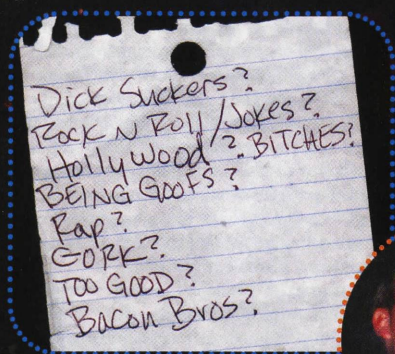 Dick Suckers?
Rock N Roll/Jokes?
Hollywood? BITCHES?
BEING GOOFS?
Rap?
GORK?
TOO GOOD?
Bacon Bros?